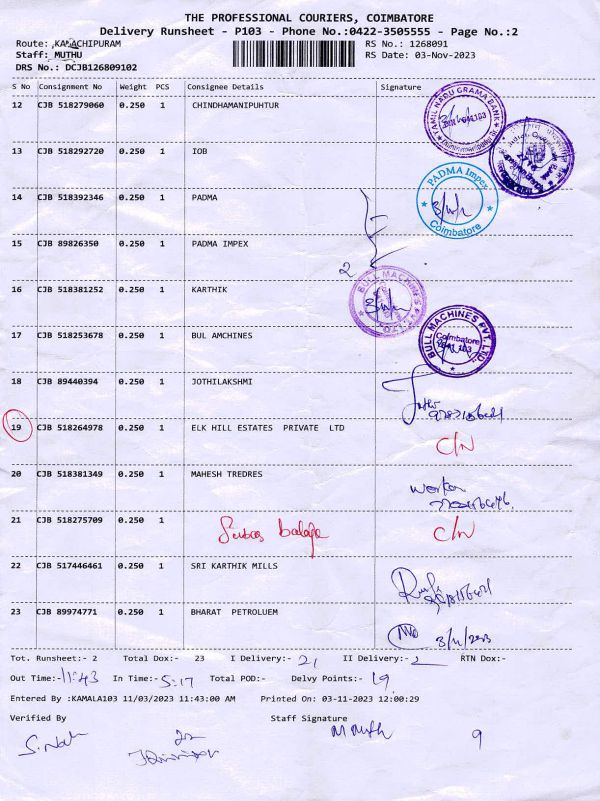 THE PROFESSIONAL COURIERS, COIMBATORE
Delivery Runsheet - P103 - Phone No.:0422-3505555 - Page No.:2
Route: KABACHIPURAM RS No.: 1268091
Staff: MUTHU RS Date: 03-Nov-2023
DRS No.: DCJB126809102
S No Consignment No Weight PCS Consignee Details Signature
12 CJB 518279060 0.250 1 CHINDHAMANIPUHTUR
TAMIL NADU GRAMA BANK
13 CJB 518292720 0.250 1 IOB
14 CJB 518392346 0.250 1 PADMA
PADMA Impex
Coimbatore
15 CJB 89826350 0.250 1 PADMA IMPEX
2
16 CJB 518381252 0.250 1 KARTHIK
BULL MACHINES PVT. LTD
17 CJB 518253678 0.250 1 BUL AMCHINES
BULL MACHINES PVT. LTD
Coimbatore
18 CJB 89440394 0.250 1 JOTHILAKSHMI
19 CJB 518264978 0.250 1 ELK HILL ESTATES PRIVATE LTD C/N
20 CJB 518381349 0.250 1 MAHESH TREDRES
worker
21 CJB 518275709 0.250 1 balaje C/N
22 CJB 517446461 0.250 1 SRI KARTHIK MILLS
23 CJB 89974771 0.250 1 BHARAT PETROLUEM 3/11/2023
Tot. Runsheet:- 2 Total Dox:- 23 I Delivery:- 21 II Delivery:- 2 RTN Dox:-
Out Time:- 11:43 In Time:- 5:17 Total POD:- Delvy Points:- 19
Entered By :KAMALA103 11/03/2023 11:43:00 AM Printed On: 03-11-2023 12:00:29
Verified By Staff Signature
M Muth 9